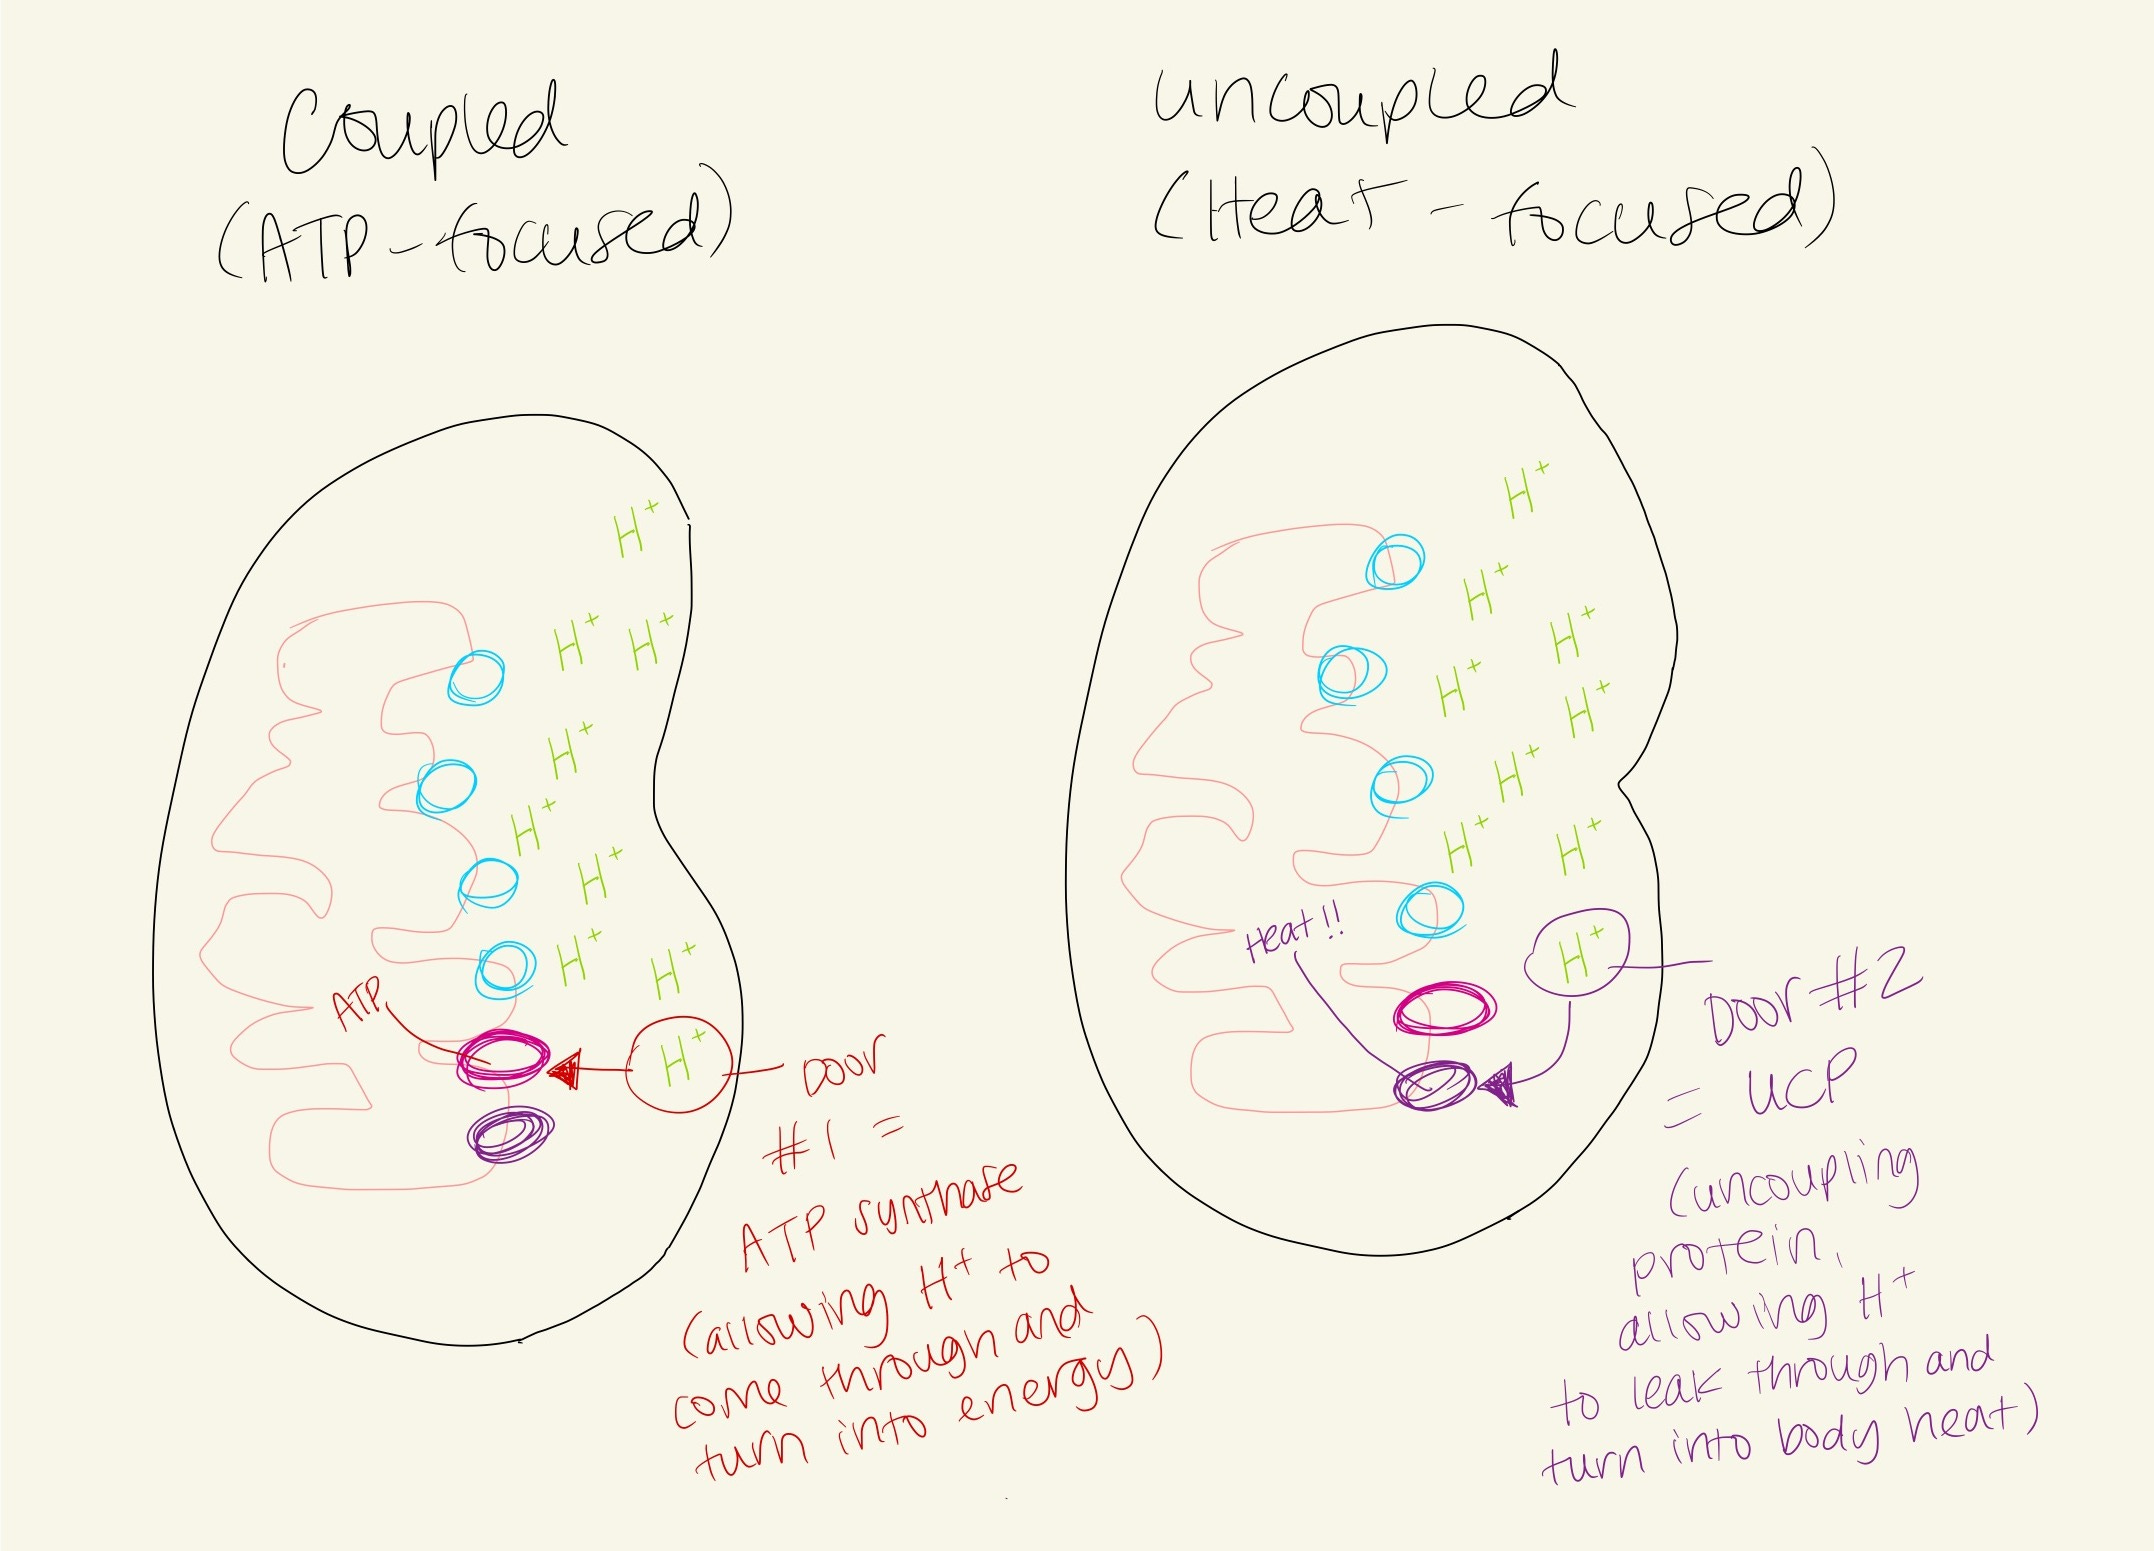 Coupled
(ATP-focused)
H+
H+ H+
H+
H+
H+
H+ H+
ATP
H+
DOOR
#1 =
ATP synthase
(allowing H+ to
come through and
turn into energy)
uncoupled
(Heat-focused)
H+
H+
H+
H+
H+
H+
H+
H+
Heat!!
H+
DOOR #2
= UCP
(uncoupling
protein,
allowing H+
to leak through and
turn into body heat)